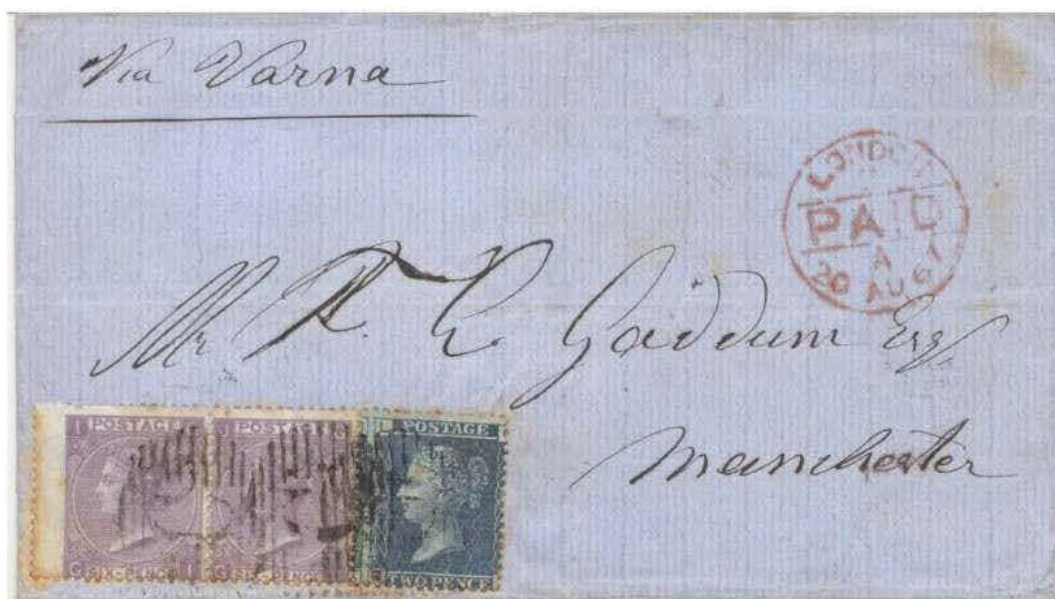 Via Varna
LONDON
PAID
A
20 AU 67
Mr Gaddum Esq.
Manchester
POSTAGE POSTAGE POSTAGE
SIXPENCE SIXPENCE TWO PENCE